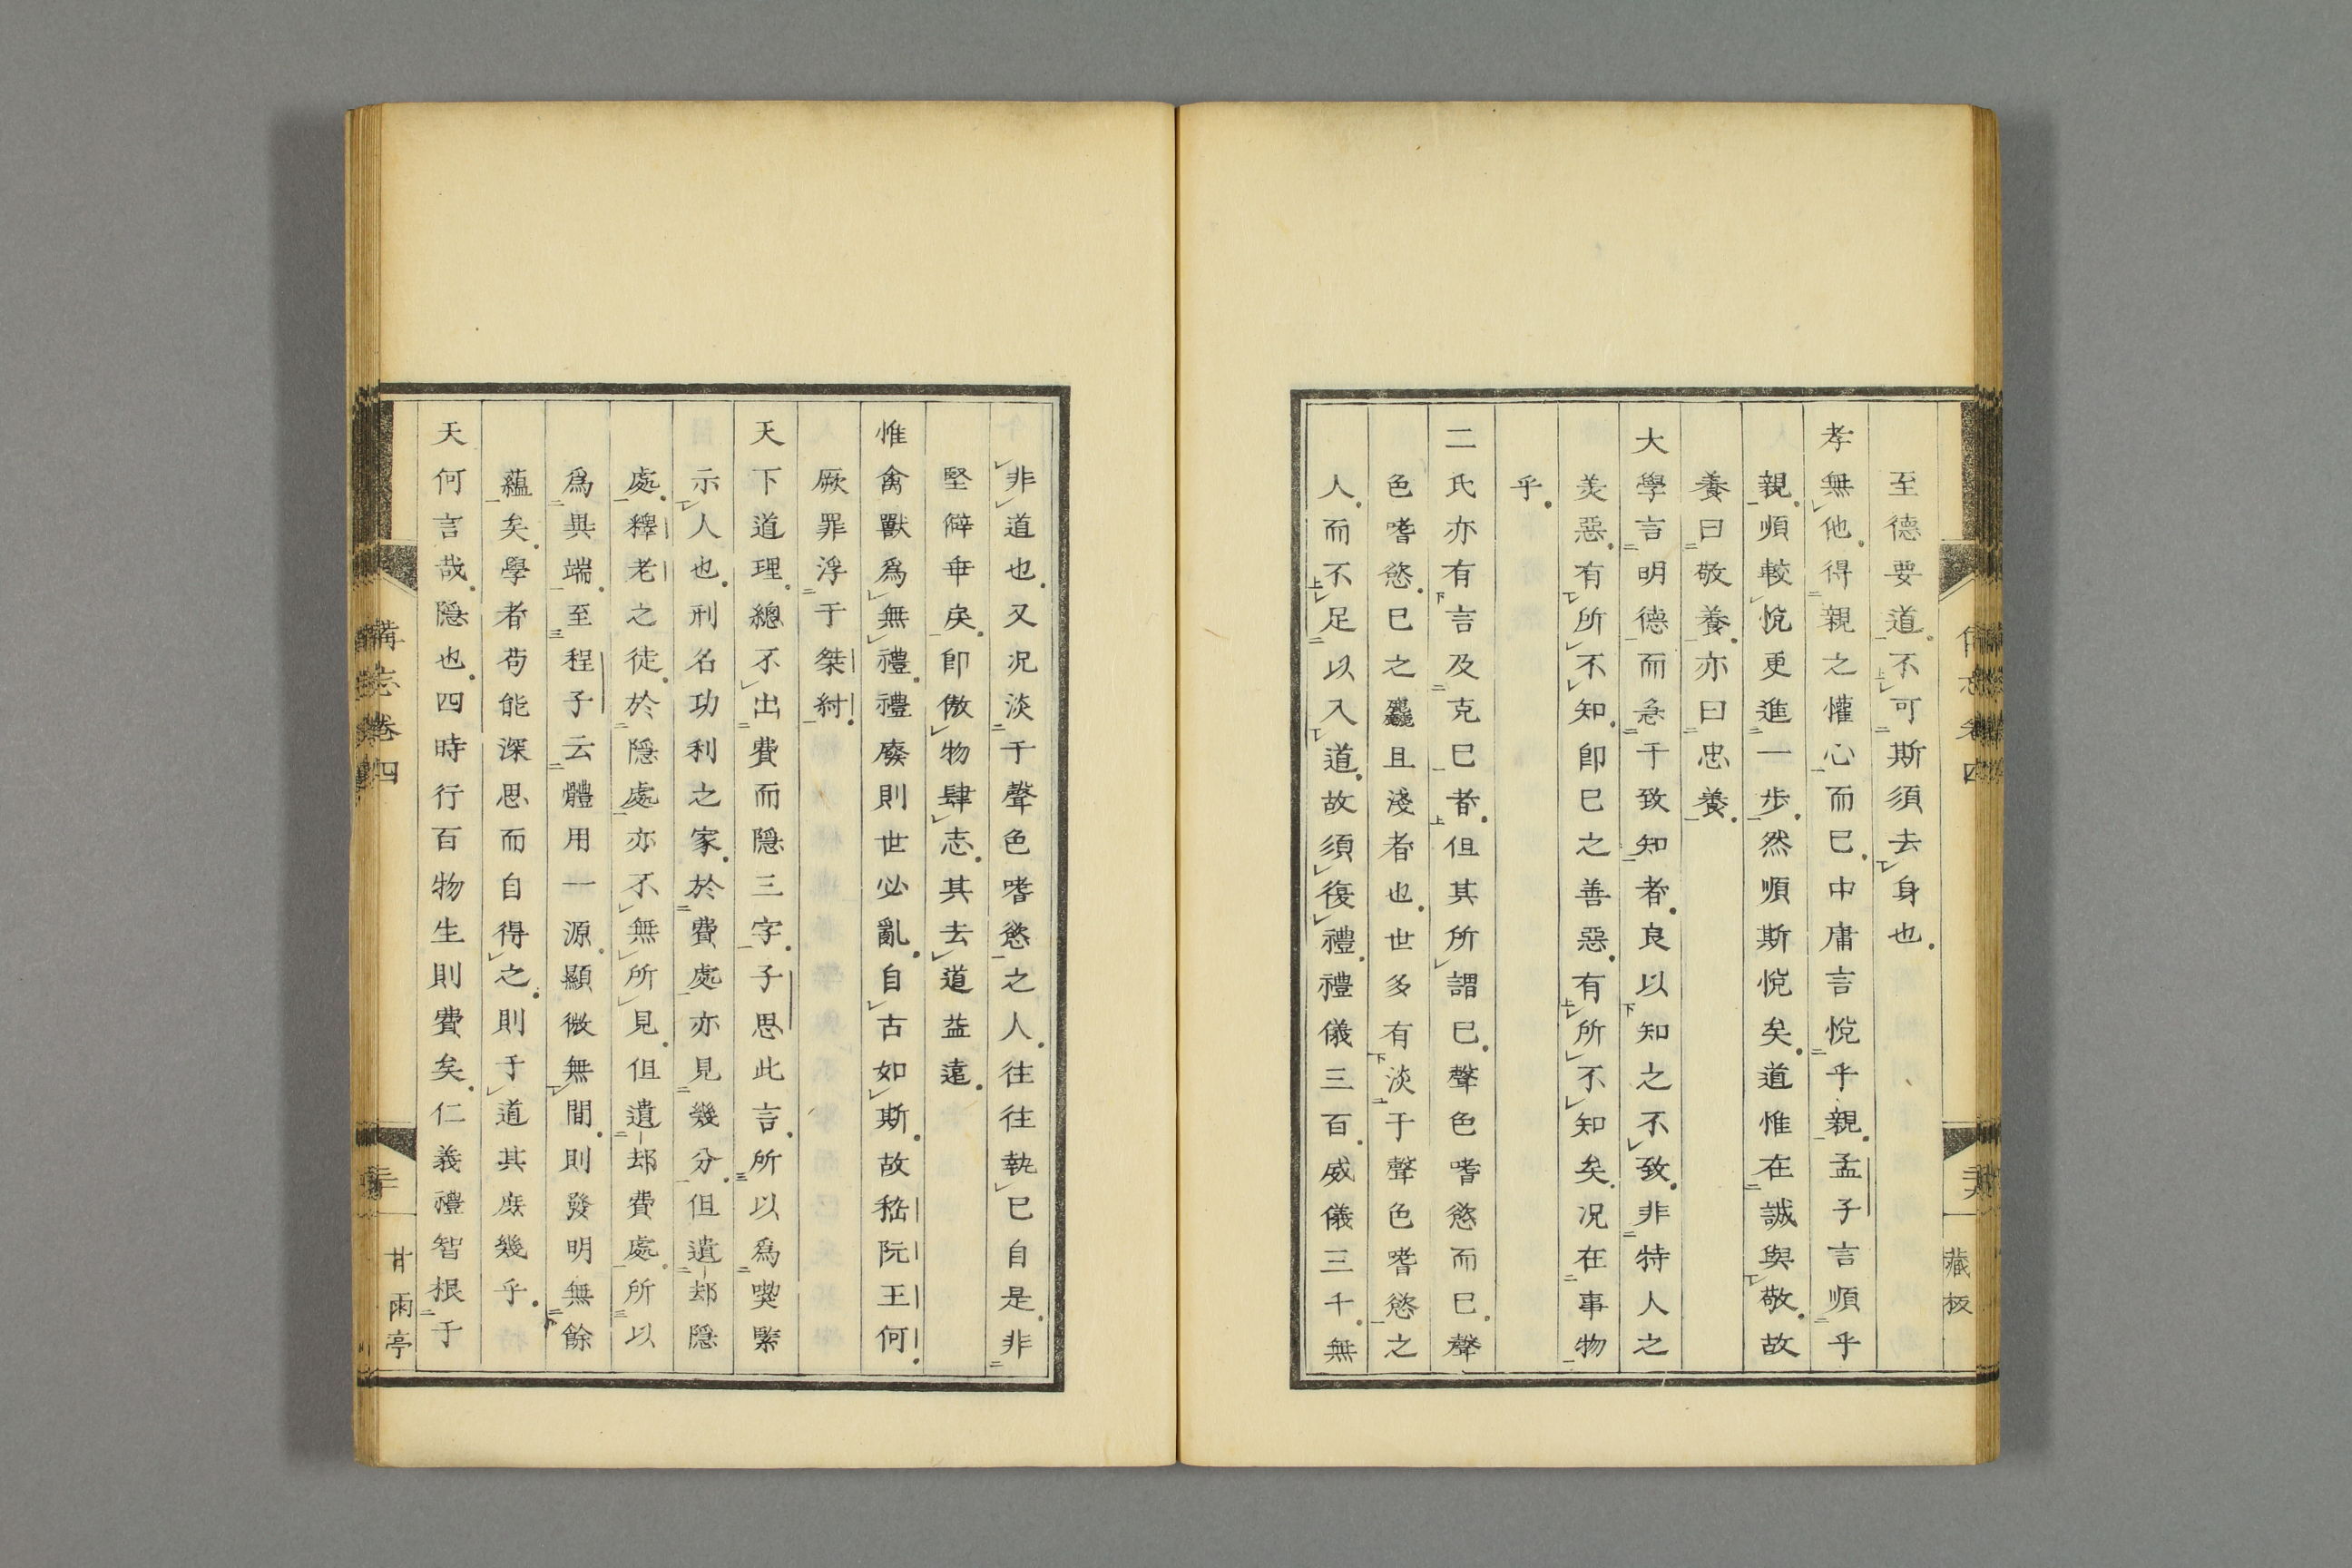 至德要道。不可斯須去身也。
孝無他。得親之懽心而已。中庸言悅乎親。孟子言順乎
親。順較悅更進一步。然順斯悅矣。道惟在誠與敬。故
養曰敬養。亦曰忠養。
大學言明德而急于致知者。良以知之不致。非特人之
美惡。有所不知。卽已之善惡。有所不知矣。況在事物
乎。
二氏亦有言及克已者。但其所謂已。聲色嗜慾而已。聲
色嗜慾。已之麤且淺者也。世多有淡于聲色嗜慾之
人。而不足以入道。故須復禮。禮儀三百。威儀三千。無
藏板
非道也。又況淡于聲色嗜慾之人。往往執已自是。非
堅僻乖戾。卽傲物肆志。其去道益遠。
惟禽獸爲無禮。禮廢則世必亂。自古如斯。故嵇阮王何。
厥罪浮于桀紂。
天下道理。總不出費而隱三字。子思此言。所以爲喫緊
示人也。刑名功利之家。於費處亦見幾分。但遺却隱
處。釋老之徒。於隱處亦不無所見。但遺却費處。所以
爲異端。至程子云體用一源。顯微無間。則發明無餘
蘊矣。學者苟能深思而自得之。則于道其庶幾乎。
天何言哉。隱也。四時行百物生則費矣。仁義禮智根于
備忘卷四
甘雨亭